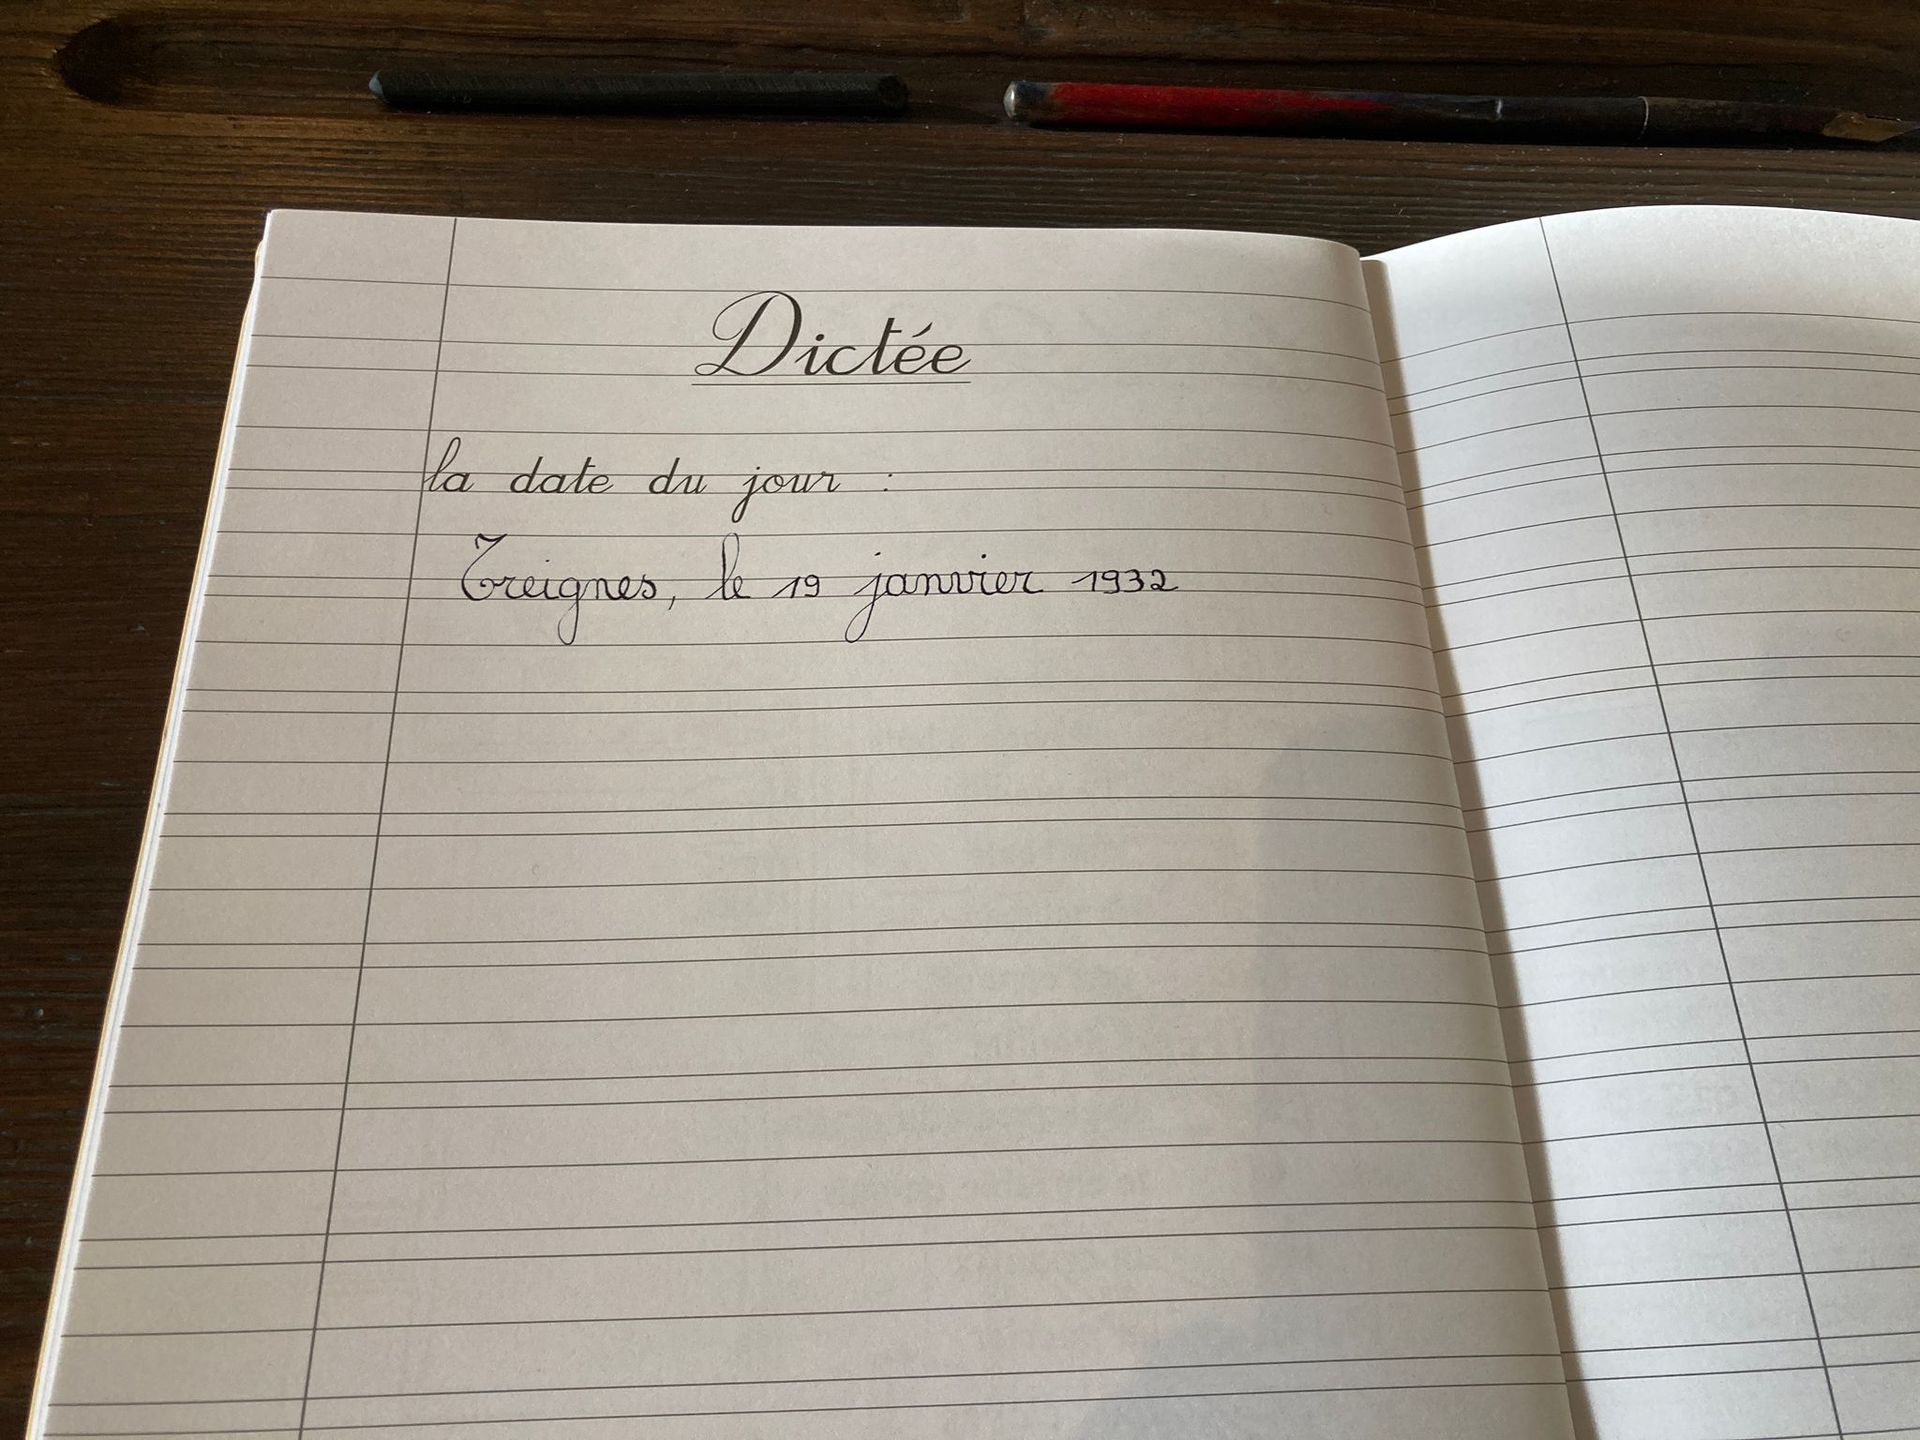 Dictée
la date du jour :
Treignes, le 19 janvier 1932